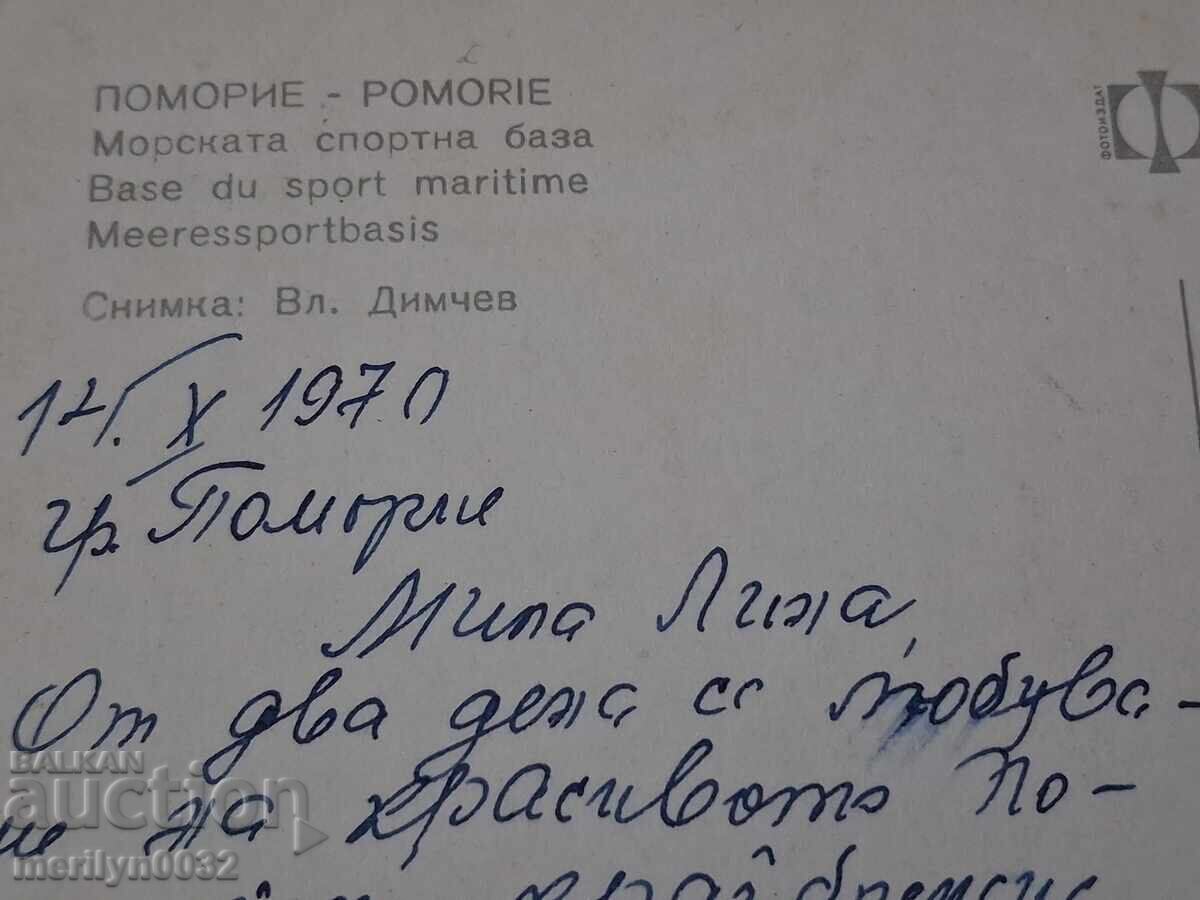 ПОМОРИЕ - POMORIE
Морската спортна база
Base du sport maritime
Meeressportbasis
Снимка: Вл. Димчев
ФОТОИЗДАТ
X 1970
гр. Поморие
Мила Лина,
От два дена се любува-
ме на красивото По-
край
BALKAN
auction
merilyn0032